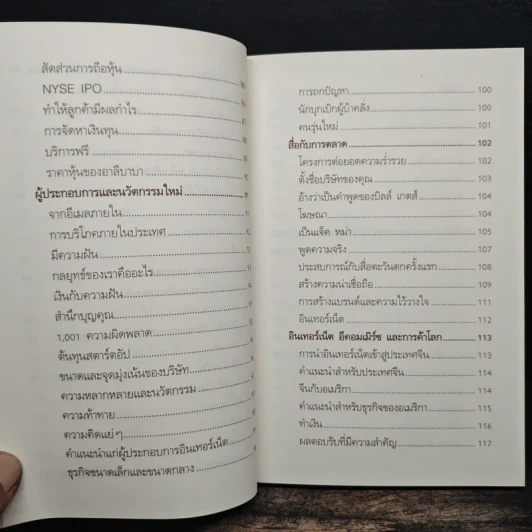 สัดส่วนการถือหุ้น
NYSE IPO
ทำให้ลูกค้ามีผลกำไร
การจัดหาเงินทุน
บริการฟรี
ราคาหุ้นของอาลีบาบา
ผู้ประกอบการและนวัตกรรมใหม่
จากอีเมลภายใน
การบริโภคภายในประเทศ
มีความฝัน
กลยุทธ์ของเราคืออะไร
เงินกับความฝัน
สำนึกบุญคุณ
1,001 ความผิดพลาด
ต้นทุนสตาร์ตอัป
ขนาดและจุดมุ่งเน้นของบริษัท
ความหลากหลายและนวัตกรรม
ความท้าทาย
ความคิดแย่ๆ
คำแนะนำแก่ผู้ประกอบการอินเทอร์เน็ต
ธุรกิจขนาดเล็กและขนาดกลาง
การถกปัญหา 100
นักบุกเบิกผู้บ้าคลั่ง 100
คนรุ่นใหม่ 101
สื่อกับการตลาด 102
โครงการต่อยอดความร่ำรวย 102
ตั้งชื่อบริษัทของคุณ 102
อ้างว่าเป็นคำพูดของบิลล์ เกตส์ 104
โฆษณา 104
เป็นแจ็ค หม่า 105
พูดความจริง 107
ประสบการณ์กับสื่อตะวันตกครั้งแรก 108
สร้างความน่าเชื่อถือ 109
การสร้างแบรนด์และความไว้วางใจ 111
อินเทอร์เน็ต 112
อินเทอร์เน็ต อีคอมเมิร์ซ และการค้าโลก 113
การนำอินเทอร์เน็ตเข้าสู่ประเทศจีน 113
คำแนะนำสำหรับประเทศจีน 114
จีนกับอเมริกา 114
คำแนะนำสำหรับธุรกิจของอเมริกา 115
ทำเงิน 116
ผลตอบรับที่มีความสำคัญ 117